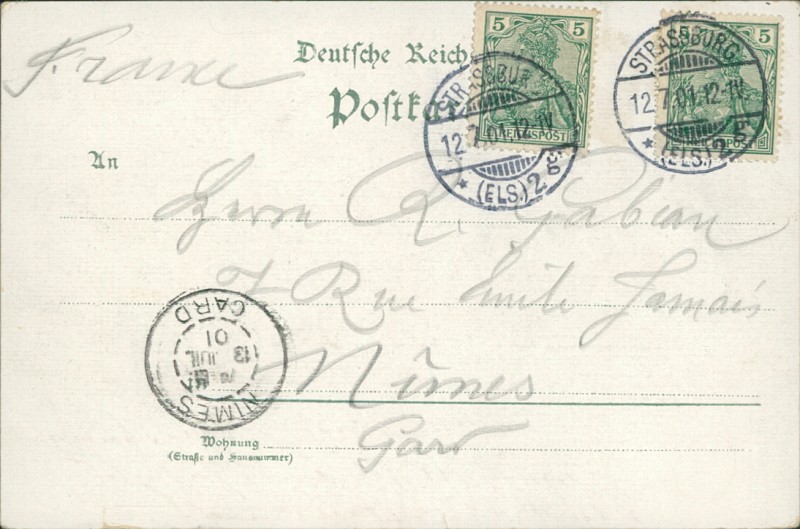 France
Deutsche Reich
Postka
5 5
REICHSPOST
STRASSBURG
12.7.01.12-1V
* (ELS.) 2 g.
5
STRASSBURG
12.7.01.12-1V
* (ELS.) 2 g.
An
Herrn R. Fabian
7 Rue Emile Jamais
Nîmes
Gard
NIMES
13 JUIL
01
GARD
Wohnung
(Straße und Hausnummer)